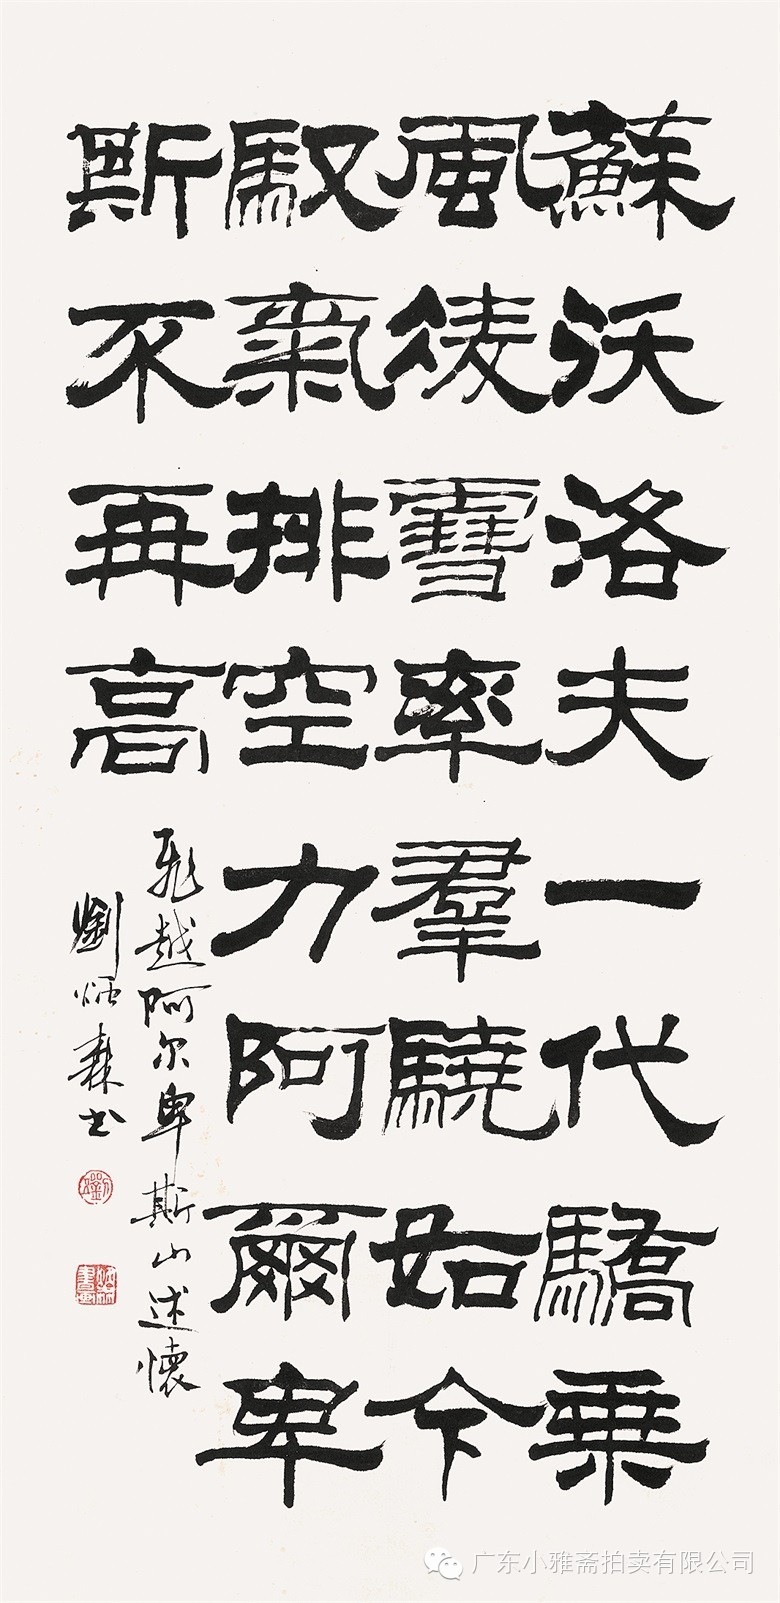 蘇沃洛夫一代驕乘
風凌雪率羣驍如今
馭氣排空力阿爾卑
斯不再高
飛越阿尔卑斯山述懷
劉炳森书
广东小雅斋拍卖有限公司